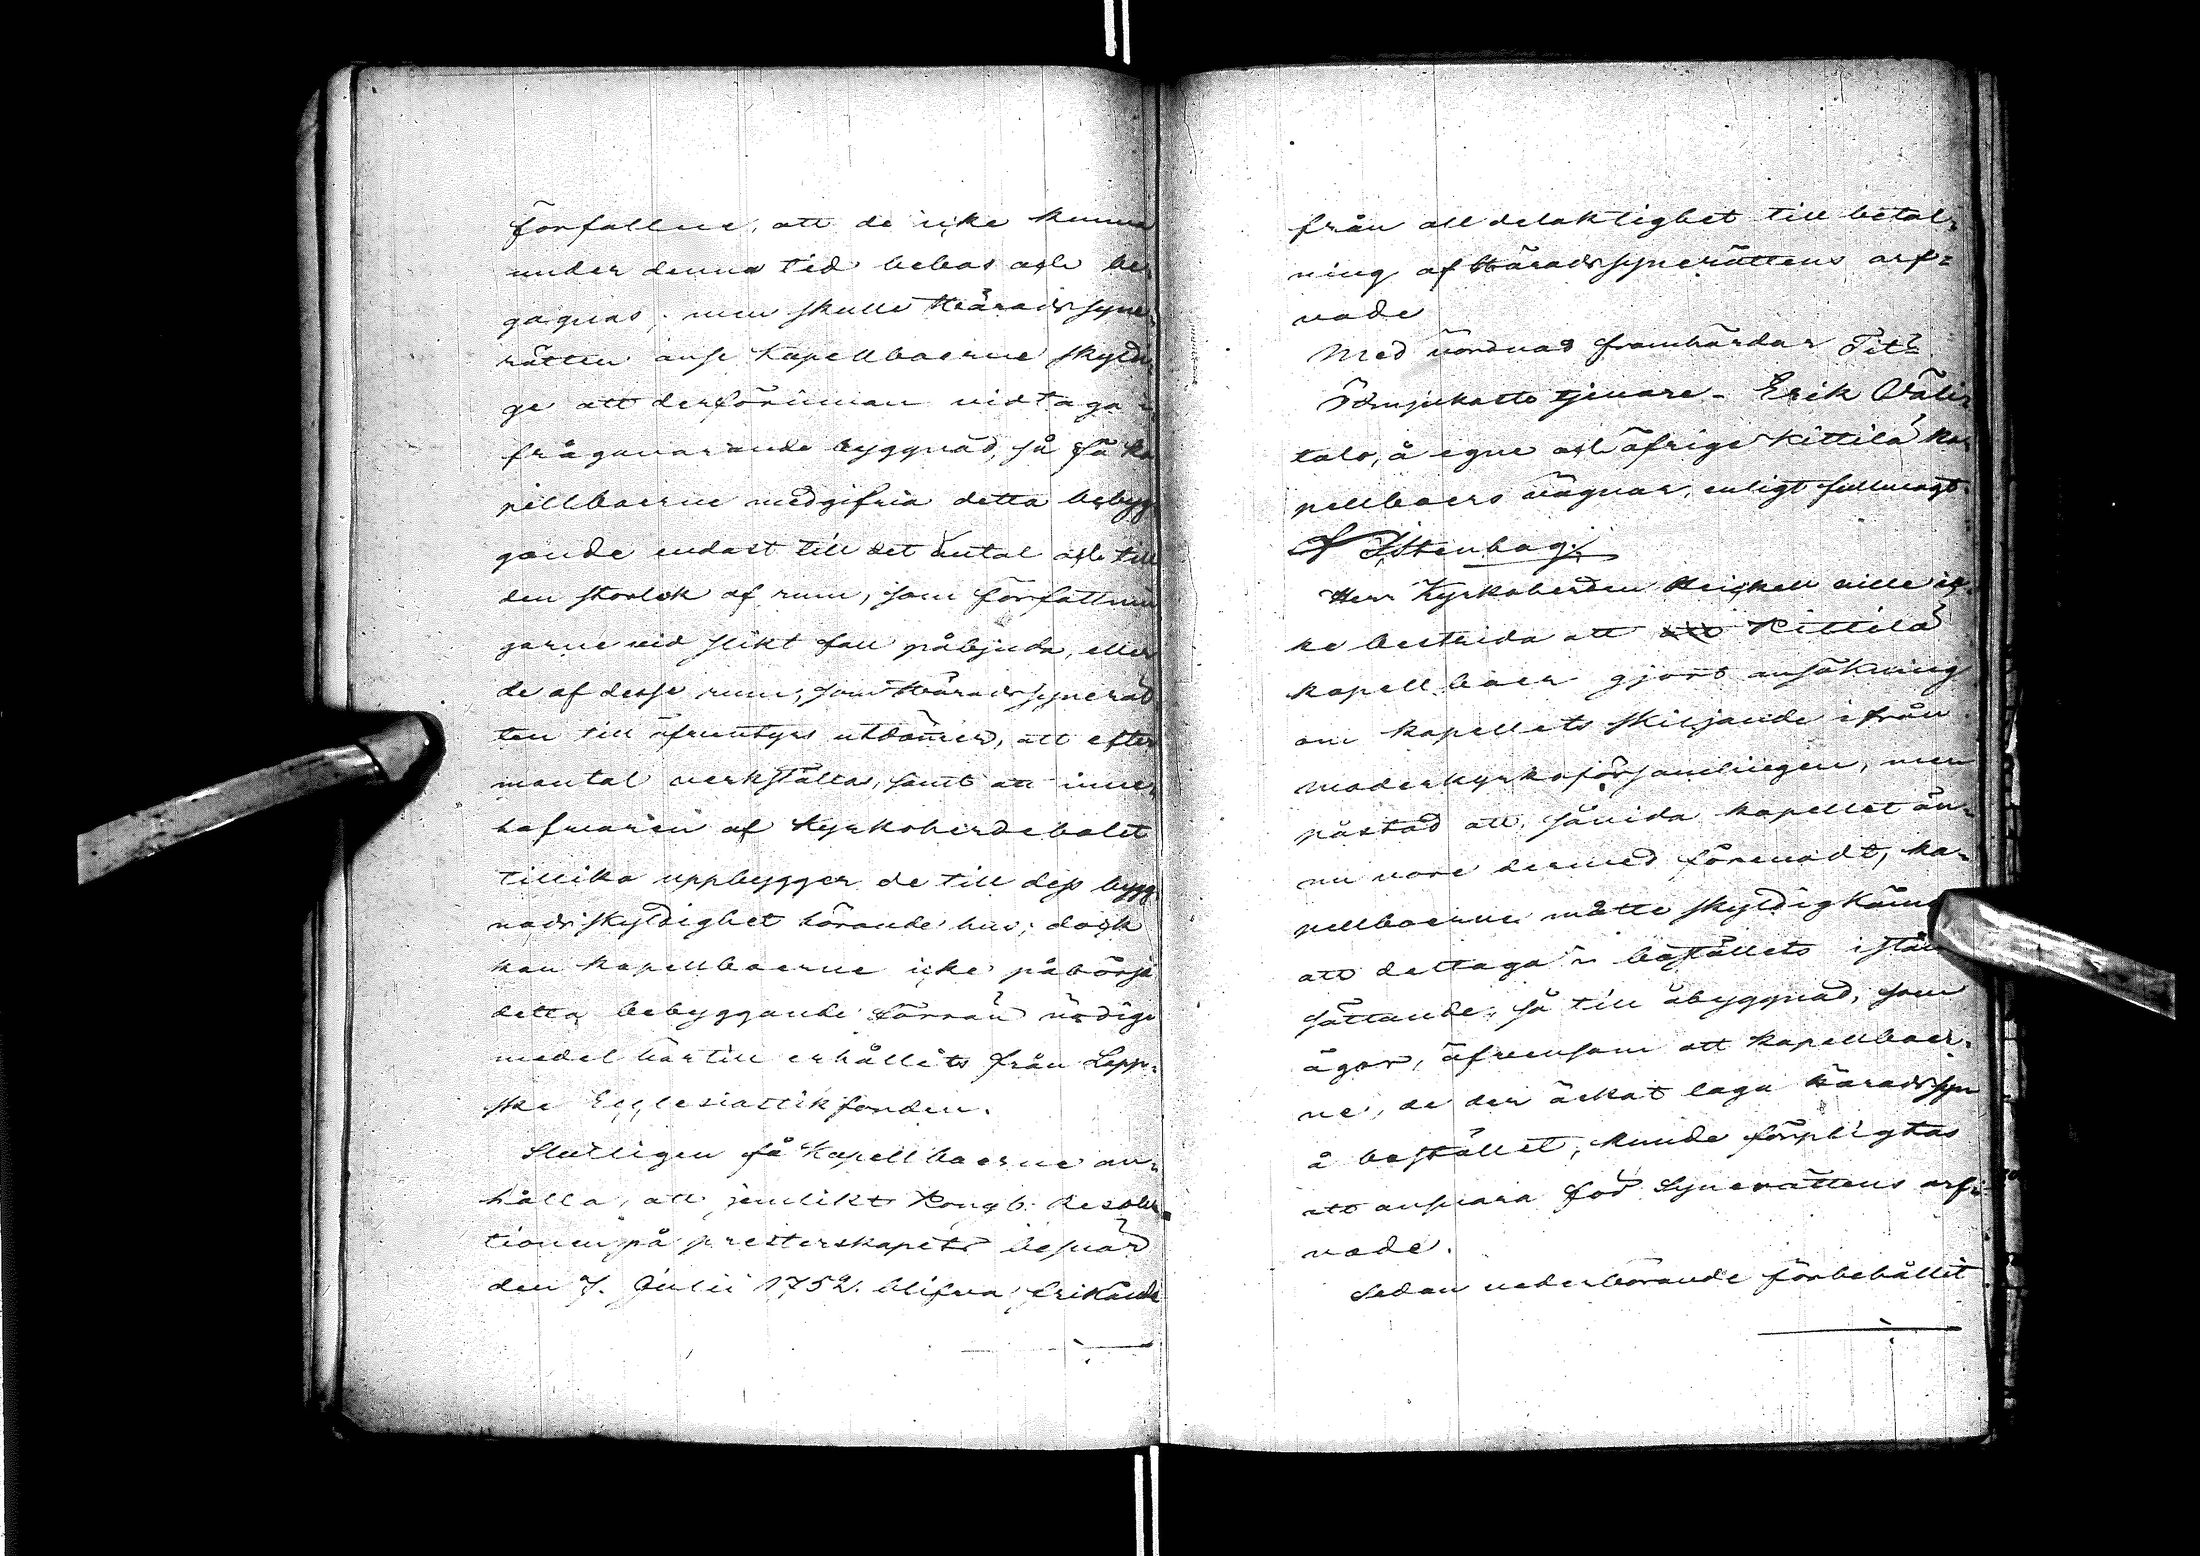 förfallne, att de icke kunna
under denna tid bebos och be-
gagnas; men skulle Häradssyne-
rätten anse Kapellboerne skyldi-
ge att derförinnan vidtaga i
frågavarande byggnad, så få Ka-
pellboerne medgifva detta bebyg-
gande endast till det antal och till
den storlek af rum, som författnin-
garne vid slikt fall påbjuda, eller
de af desse rum, som Häradssynerät-
ten till äfventyrs utdömer, att efter
mantal verkställas, samt att inne-
hafvaren af Kyrkoherdebolet
tillika uppbygger de till dess bygg-
nadsskyldighet hörande hus; dock
kan Kapellboerne icke påbörja
detta bebyggande förrän nödige
medel härtill erhållits från Lapp-
ske Ecclesiastikfonden.
Slutligen få Kapellboerne an-
hålla, att jemlikt Kongl. Resolu-
tionen på presterskapets besvär
den 7. Julii 1752. blifva frikände
från all delaktighet till betal-
ning af Häradssynerättens arf-
vode
Med vördnad framhärdar Tit.
Ödmjukaste tjenare - Erik Väli-
talo, å egne och öfrige Kittilä Ka-
pellboers vägnar, enligt fullmagt.
Herr Kyrkoherden Heickell ville ic-
ke bestrida att Kittilä
kapellboer gjort ansökning
om kapellets skiljande ifrån
moderkyrkoförsamlingen, men
påstod att, såvida kapellet än-
nu vore dermed förenadt, ka-
pellboerne måtte skyldigkännas
att deltaga i boställets istånd-
sättande, så till åbyggnad, som
ägor, äfvensom att kapellboer-
ne, de der äskat laga Häradssyn
å bostället, kunde förpligtas
att ansvara för Synerättens arf-
vode.
Sedan vederbörande förbehållit